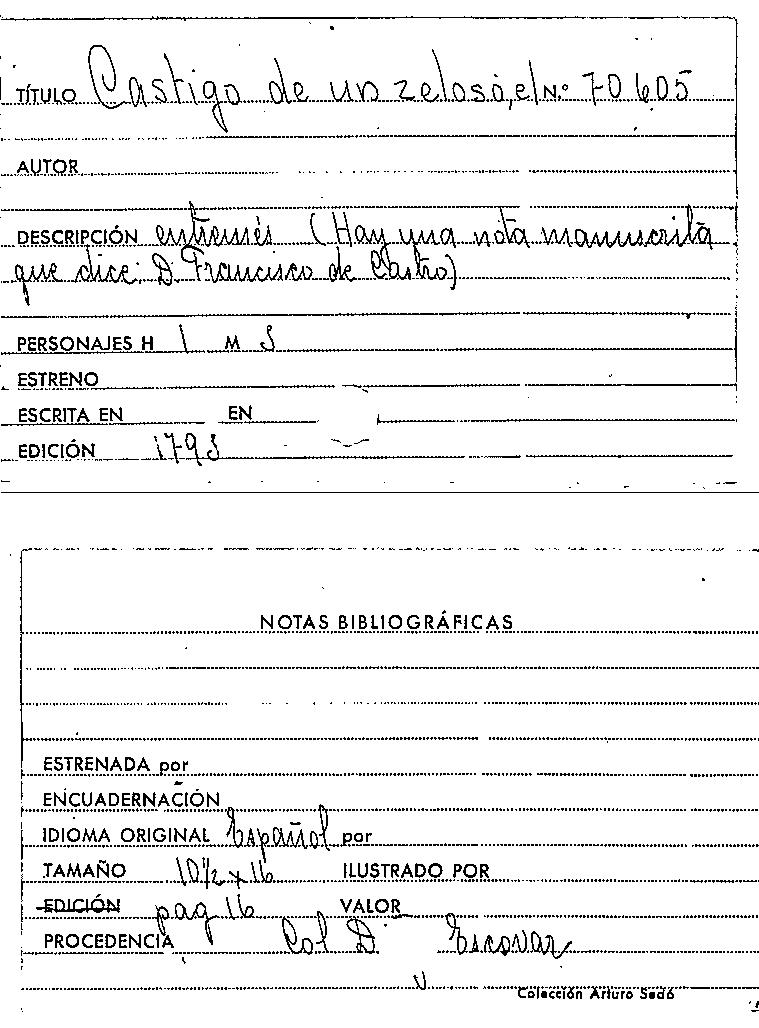 TÍTULO Castigo de un zeloso, el N.º 70605
AUTOR
DESCRIPCIÓN entremés (Hay una nota manuscrita
que dice: D. Francisco de Castro)
PERSONAJES H 1 M S
ESTRENO
ESCRITA EN EN
EDICIÓN
NOTAS BIBLIOGRÁFICAS
ESTRENADA por
ENCUADERNACIÓN
IDIOMA ORIGINAL Español por
TAMAÑO 10½ x 16 ILUSTRADO POR
EDICIÓN pag 16 VALOR
PROCEDENCIA Col D. Escovar
Colección Arturo Sedó